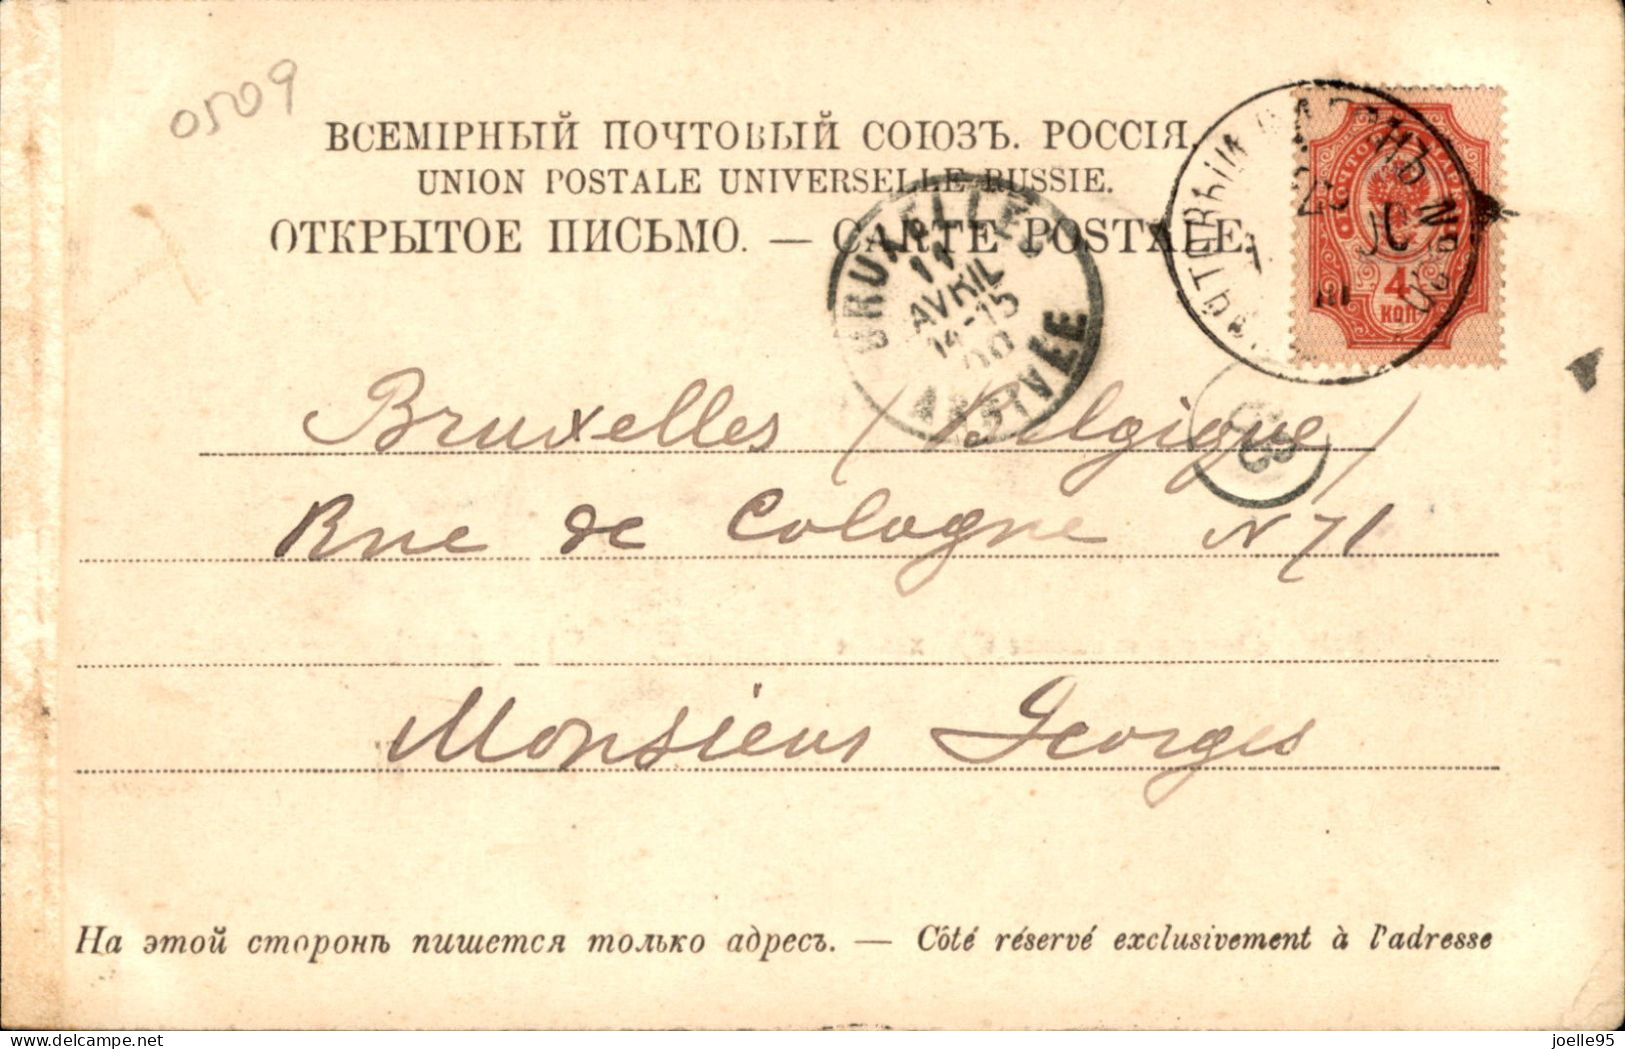 0509
ВСЕМІРНЫЙ ПОЧТОВЫЙ СОЮЗЪ. РОССІЯ.
UNION POSTALE UNIVERSELLE RUSSIE.
ОТКРЫТОЕ ПИСЬМО. — CARTE POSTALE.
BRUXELLES
11
AVRIL
14-15
00
ARRIVEE
4
КОП
Bruxelles (Belgique)
Rue de Cologne N 71
Monsieur Georges
На этой сторонѣ пишется только адресъ. — Côté réservé exclusivement à l'adresse
delcampe.net
joelle95